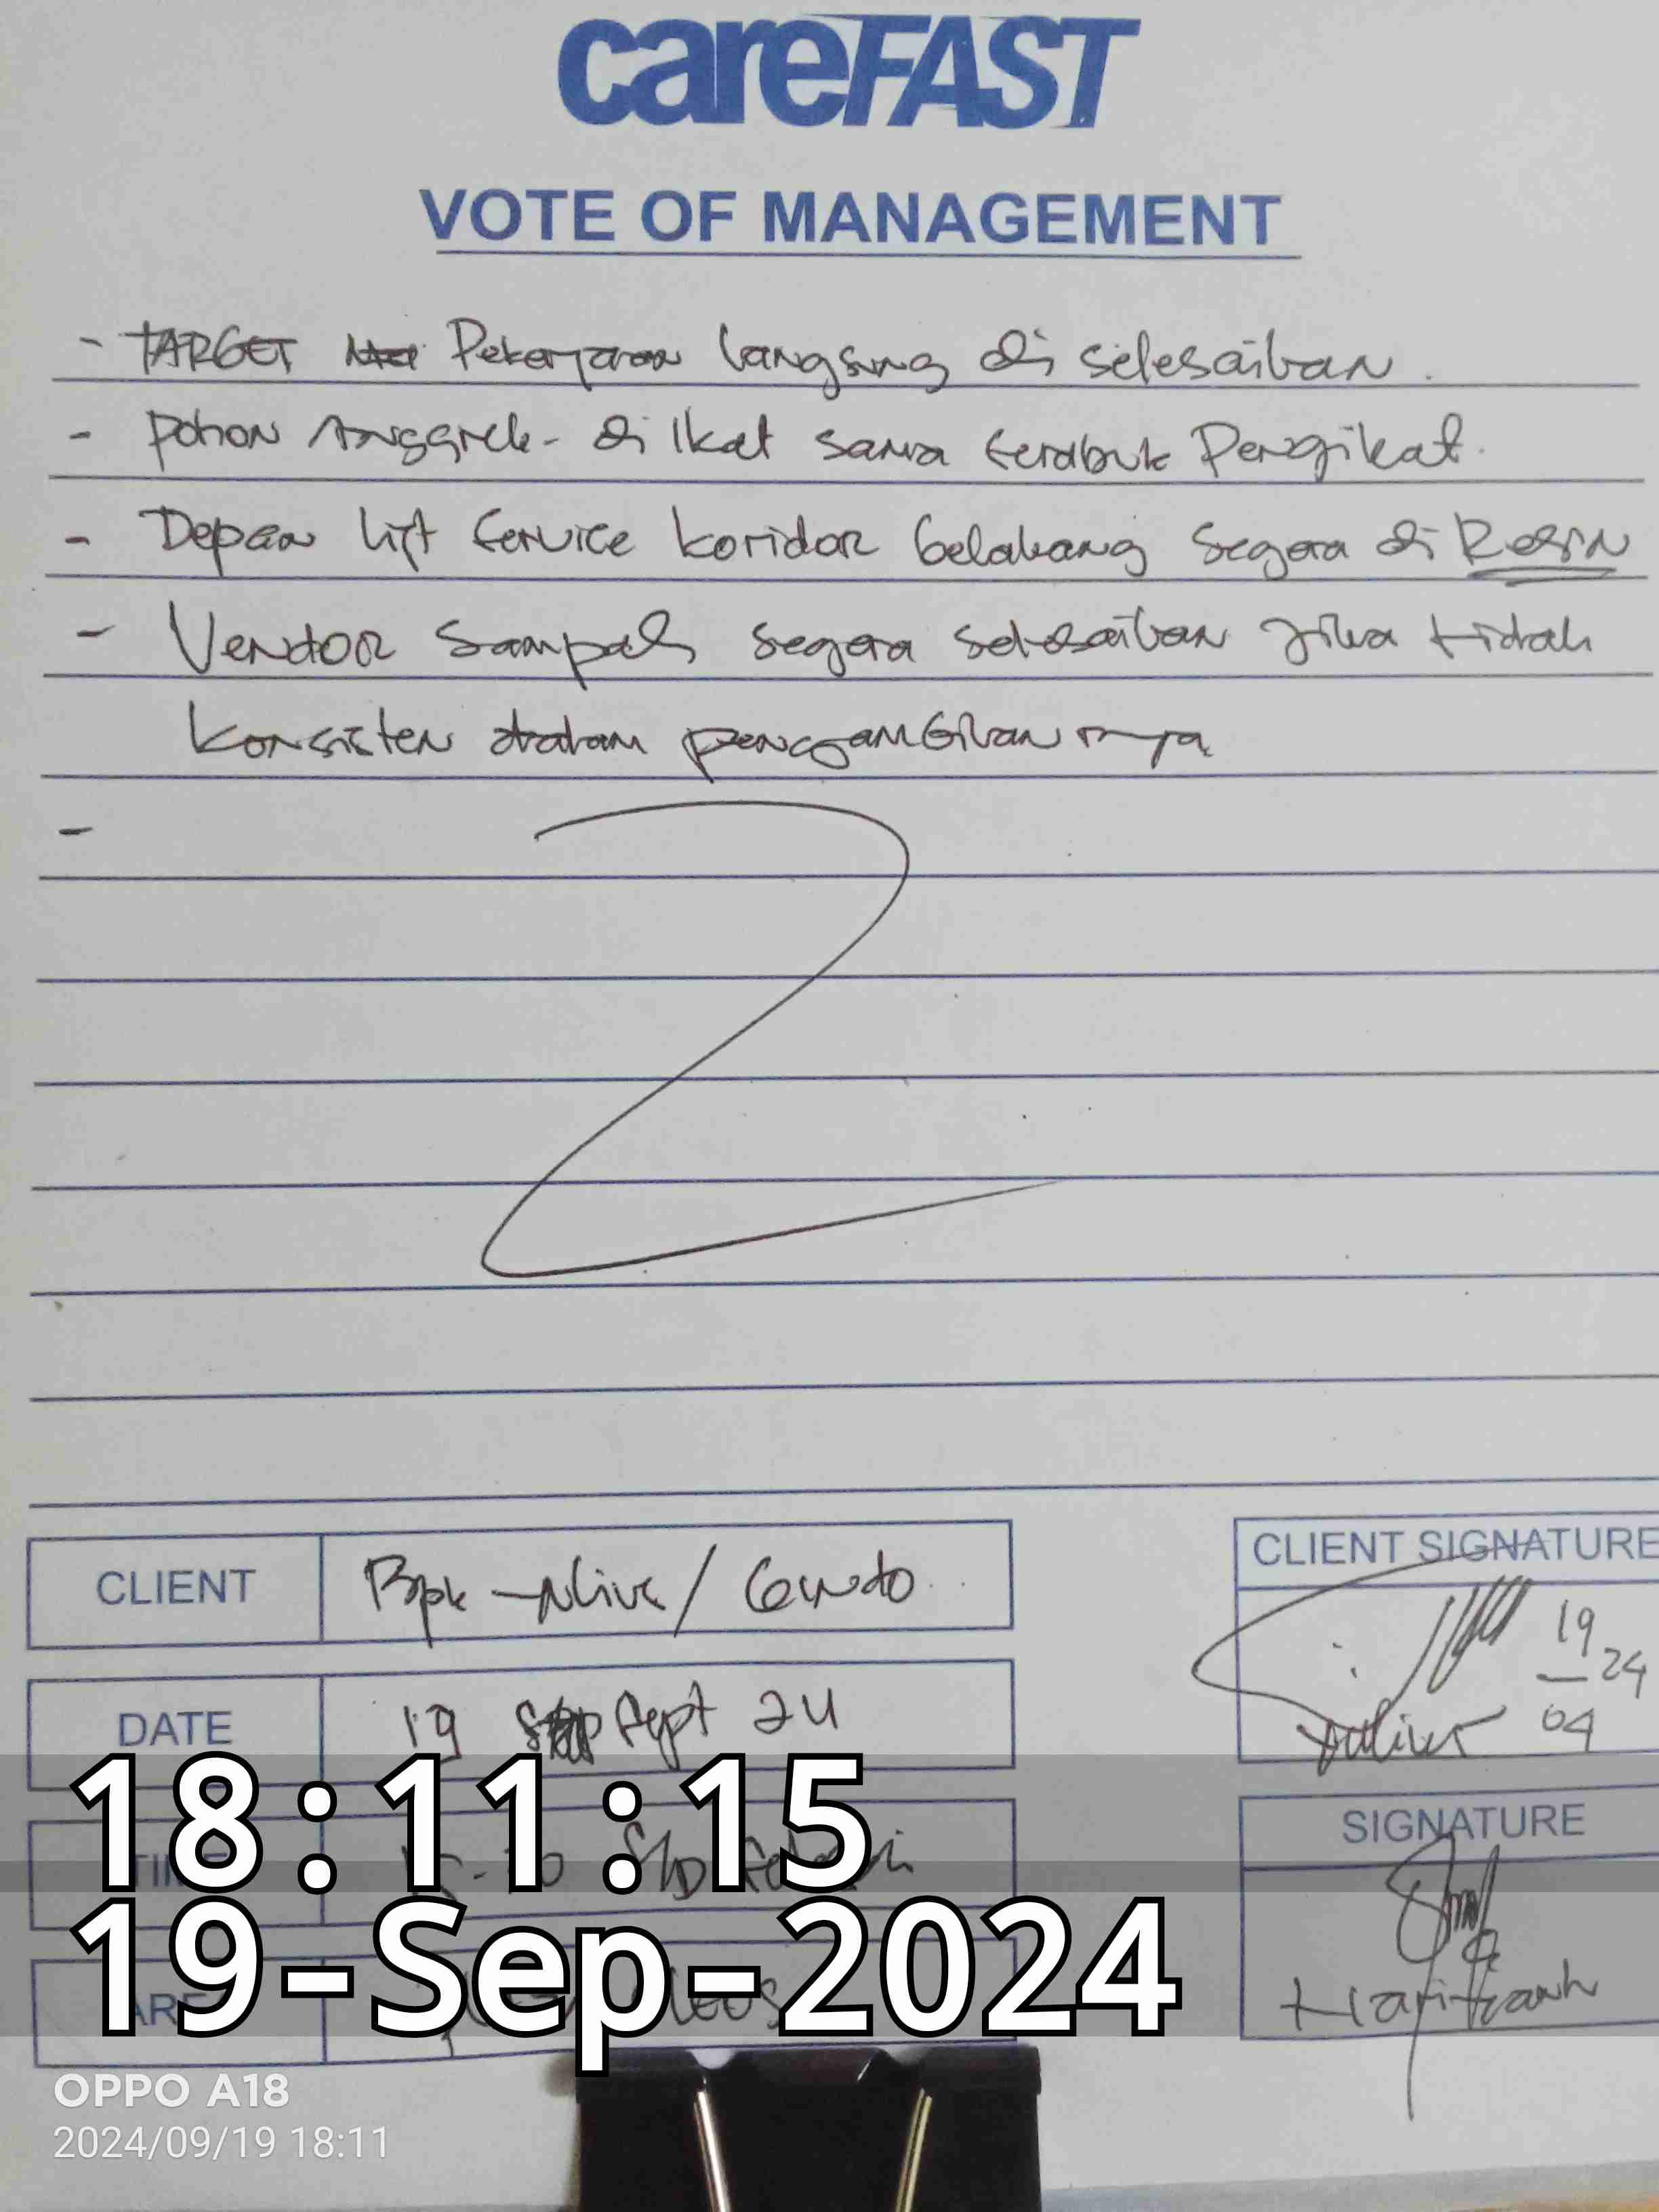 careFAST
VOTE OF MANAGEMENT
- TARGET Pekerjaan langsung di selesaikan.
- Pohon Anggrek - di Ikat sama serabuk Pengikat.
- Depan lift Service koridor belakang segera di Resin
- Vendor Sampah segera selesaikan jika tidak
Konsisten dalam pengambilan nya
-
CLIENT
CLIENT SIGNATURE
Bpk
DATE
19 Sept 24
19
24
09
18:11:15
SIGNATURE
19-Sep-2024
OPPO A18
2024/09/19 18:11